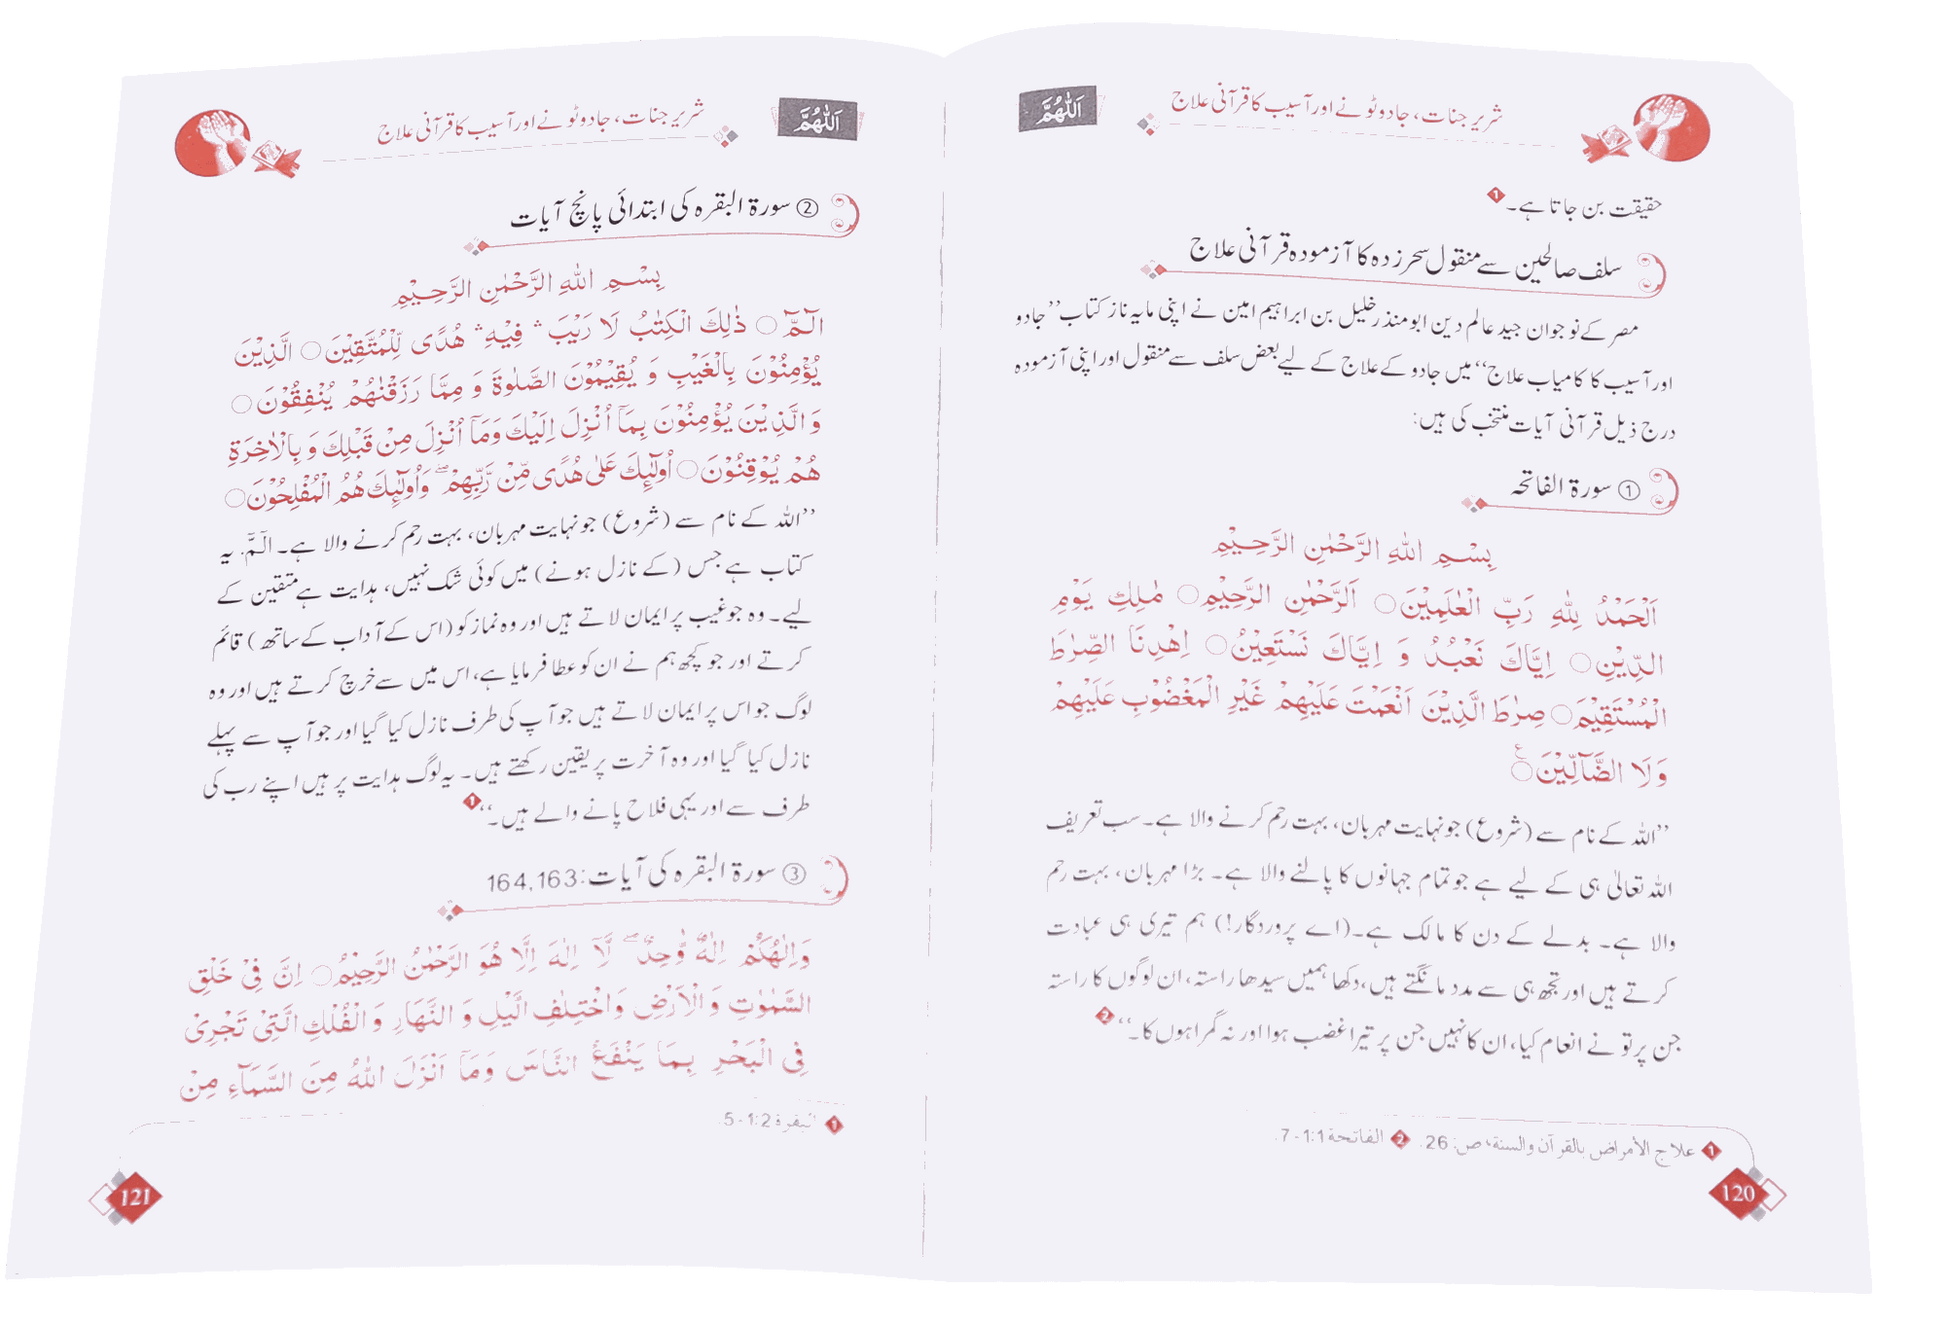 اَللّٰهُمَّ
شریر جنات، جادو ٹونے اور آسیب کا قرآنی علاج
حقیقت بن جاتا ہے۔ 1
سلف صالحین سے منقول سحر زدہ کا آزمودہ قرآنی علاج
مصر کے نوجوان جید عالم دین ابو منذر خلیل بن ابراہیم امین نے اپنی مایہ ناز کتاب ’’جادو
اور آسیب کا کامیاب علاج‘‘ میں جادو کے علاج کے لیے بعض سلف سے منقول اور اپنی آزمودہ
درج ذیل قرآنی آیات منتخب کی ہیں:
① سورۃ الفاتحہ
بِسْمِ اللّٰهِ الرَّحْمٰنِ الرَّحِيْمِ
اَلْحَمْدُ لِلّٰهِ رَبِّ الْعٰلَمِيْنَ○ اَلرَّحْمٰنِ الرَّحِيْمِ○ مٰلِكِ يَوْمِ
الدِّيْنِ○ اِيَّاكَ نَعْبُدُ وَ اِيَّاكَ نَسْتَعِيْنُ○ اِهْدِنَا الصِّرٰطَ
الْمُسْتَقِيْمَ○ صِرٰطَ الَّذِيْنَ اَنْعَمْتَ عَلَيْهِمْ غَيْرِ الْمَغْضُوْبِ عَلَيْهِمْ
وَلَا الضَّآلِّيْنَ○ۧ
’’اللہ کے نام سے (شروع) جو نہایت مہربان، بہت رحم کرنے والا ہے۔ سب تعریف
اللہ تعالیٰ ہی کے لیے ہے جو تمام جہانوں کا پالنے والا ہے۔ بڑا مہربان، بہت رحم
والا ہے۔ بدلے کے دن کا مالک ہے۔ (اے پروردگار!) ہم تیری ہی عبادت
کرتے ہیں اور تجھ ہی سے مدد مانگتے ہیں، دکھا ہمیں سیدھا راستہ، ان لوگوں کا راستہ
جن پر تو نے انعام کیا، ان کا نہیں جن پر تیرا غضب ہوا اور نہ گمراہوں کا۔‘‘ 2
1 علاج الأمراض بالقرآن والسنة، ص: 26. 2 الفاتحة 1:1-7.
120
اَللّٰهُمَّ
شریر جنات، جادو ٹونے اور آسیب کا قرآنی علاج
② سورۃ البقرہ کی ابتدائی پانچ آیات
بِسْمِ اللّٰهِ الرَّحْمٰنِ الرَّحِيْمِ
الٓمّٓ○ ذٰلِكَ الْكِتٰبُ لَا رَيْبَ ۛ فِيْهِ ۛ هُدًى لِّلْمُتَّقِيْنَ○ الَّذِيْنَ
يُؤْمِنُوْنَ بِالْغَيْبِ وَ يُقِيْمُوْنَ الصَّلٰوةَ وَ مِمَّا رَزَقْنٰهُمْ يُنْفِقُوْنَ○
وَ الَّذِيْنَ يُؤْمِنُوْنَ بِمَآ اُنْزِلَ اِلَيْكَ وَمَآ اُنْزِلَ مِنْ قَبْلِكَ وَ بِالْاٰخِرَةِ
هُمْ يُوْقِنُوْنَ○ اُولٰٓئِكَ عَلٰى هُدًى مِّنْ رَّبِّهِمْ ۖ وَاُولٰٓئِكَ هُمُ الْمُفْلِحُوْنَ○
’’اللہ کے نام سے (شروع) جو نہایت مہربان، بہت رحم کرنے والا ہے۔ الٓمّٓ۔ یہ
کتاب ہے جس (کے نازل ہونے) میں کوئی شک نہیں، ہدایت ہے متقین کے
لیے۔ وہ جو غیب پر ایمان لاتے ہیں اور وہ نماز کو (اس کے آداب کے ساتھ) قائم
کرتے اور جو کچھ ہم نے ان کو عطا فرمایا ہے، اس میں سے خرچ کرتے ہیں اور وہ
لوگ جو اس پر ایمان لاتے ہیں جو آپ کی طرف نازل کیا گیا اور جو آپ سے پہلے
نازل کیا گیا اور وہ آخرت پر یقین رکھتے ہیں۔ یہ لوگ ہدایت پر ہیں اپنے رب کی
طرف سے اور یہی فلاح پانے والے ہیں۔‘‘ 1
③ سورۃ البقرہ کی آیات: 164,163
وَاِلٰهُكُمْ اِلٰهٌ وَّاحِدٌ ۖ لَآ اِلٰهَ اِلَّا هُوَ الرَّحْمٰنُ الرَّحِيْمُ○ اِنَّ فِيْ خَلْقِ
السَّمٰوٰتِ وَ الْاَرْضِ وَاخْتِلٰفِ الَّيْلِ وَ النَّهَارِ وَ الْفُلْكِ الَّتِيْ تَجْرِيْ
فِي الْبَحْرِ بِمَا يَنْفَعُ النَّاسَ وَمَآ اَنْزَلَ اللّٰهُ مِنَ السَّمَآءِ مِنْ
1 البقرة 1:2-5.
121